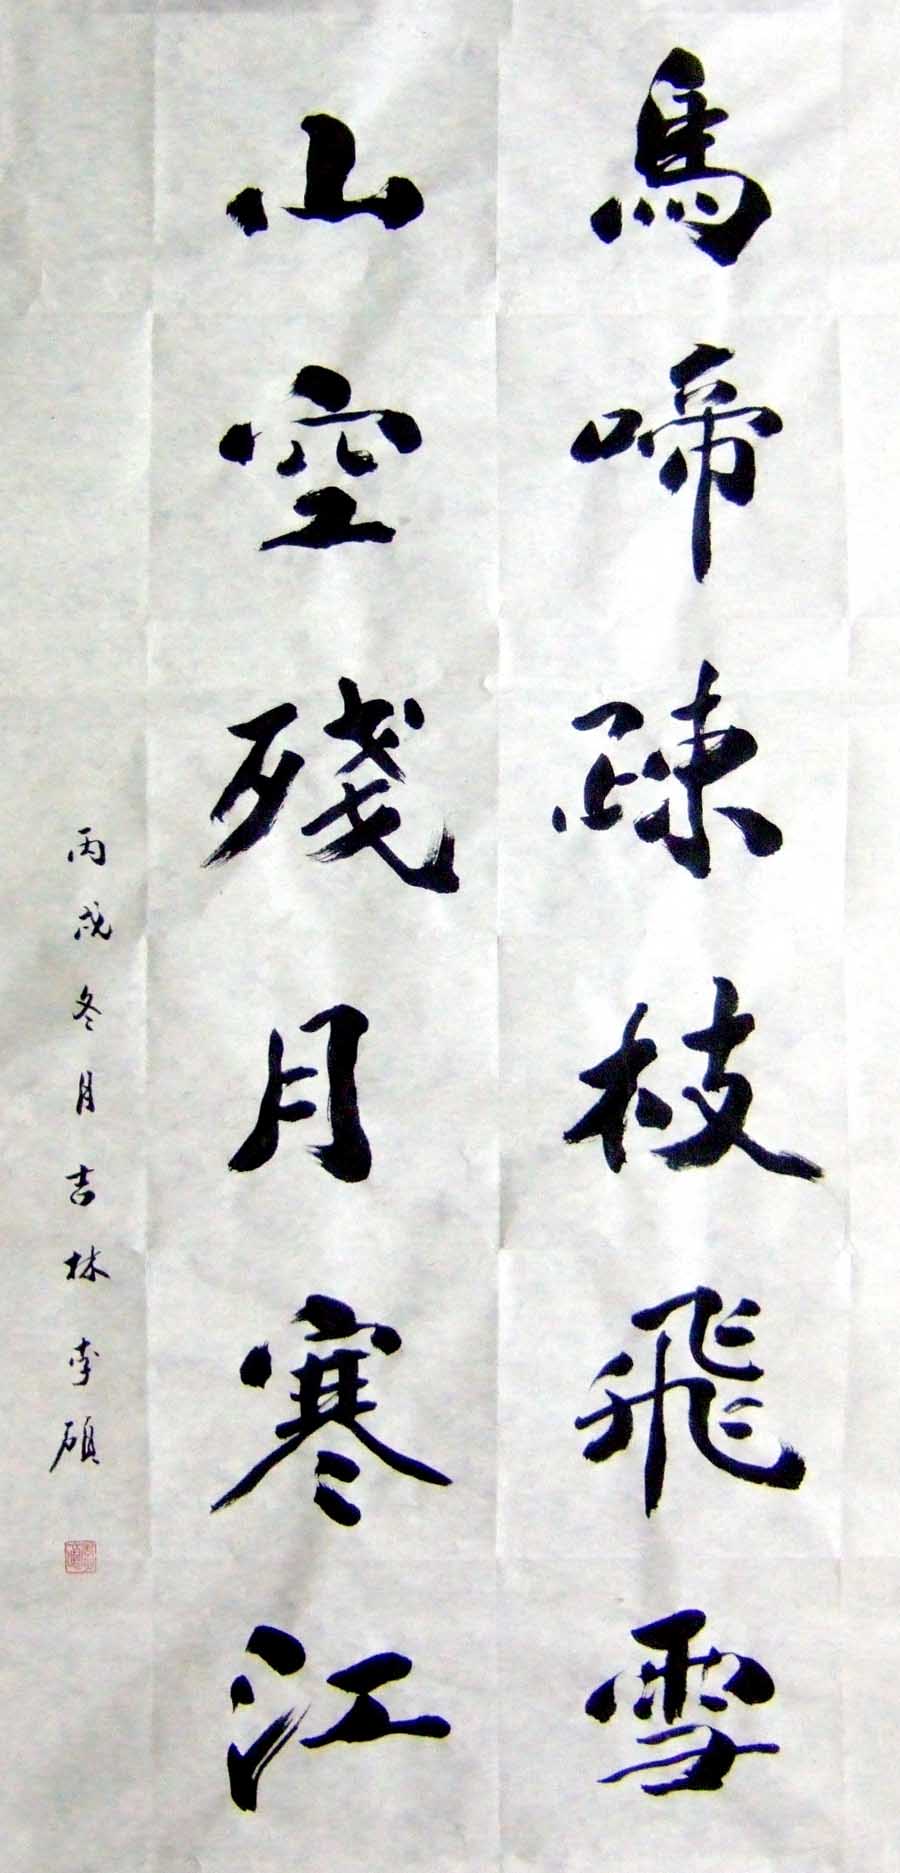 烏啼疎枝飛雪
山空殘月寒江
丙戌冬月吉林李碩